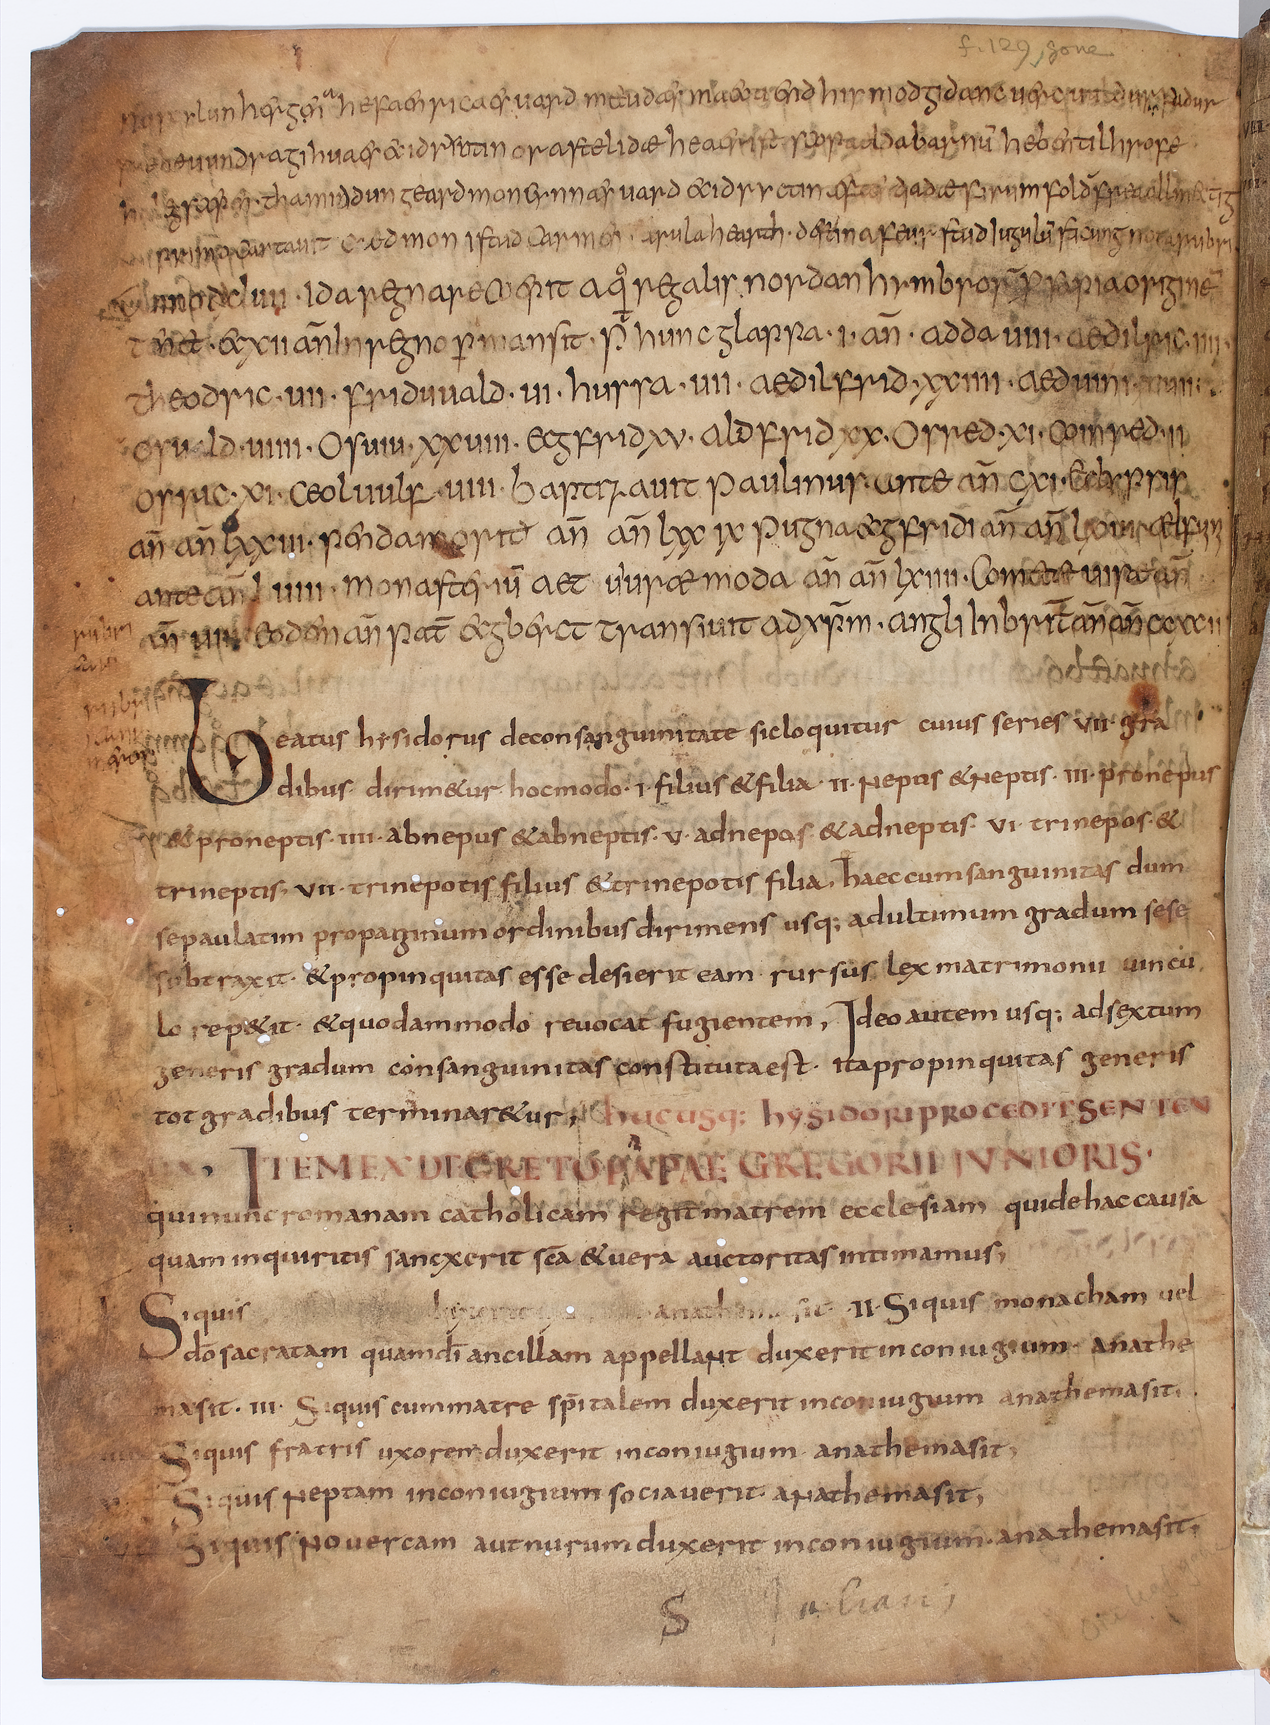 f. 129, gone
nu scylun hergan hefaenricaes uard metudæs maecti end his modgidanc uerc uuldurfadur
sue he uundra gihuaes eci dryctin or astelidæ he aerist scop aelda barnū heben til hrofe
haleg scepen. tha middungeard moncynnæs uard eci dryctin æfter tiadæ firum foldū frea allmectig
primo cantauit Caedmon istud carmen. arula hearth. destina feur stud iugulū sacung nota rubri
Anno dxluii. Ida regnare coepit a quo regalis nordanhymbrorū prosapia originē
tenet. & xii an̄ in regno permansit. P̄ hunc glappa. i. an̄. adda uiii. aedilric. iiii.
theodric. uii. friduuald. ui. hussa. uii. aedilfrid. xxiiii. aeduini. xuii.
osuald. uiiii. Osuiu. xxuiii. Ecgfrid xu. aldfrid xx. Osred. xi. Coinred. ii
osric. xi. Ceoluulf. uiii. baptizauit paulinus. ante an̄ cxi. Eclypsis
an̄ an̄ lxxiii. penda moritᷣ an̄ an̄ lxxix pugna ecgfridi an̄ an̄ lxiii. aelfuini
ante an̄ luiiii. monasteriū aet uiuræmoda an̄ an̄ lxiiii. Cometae uisae an̄
an̄ uiii. eodem an̄ pat̄ ecgberct transiuit ad xp̄m. angli in britt̄ an̄ an̄ ccxcii
Beatus hysidorus deconsanguinitate sicloquitur cuius series VII gra
dibus dirim&ur hocmodo. I. filius & filia. II. Nepus & Neptis. III. pronepus
& proneptis. IIII. abnepus & abneptis. V. adnepos. & adneptis. VI. trinepos. &
trineptis. VII. trinepotis filius & trinepotis filia, haeccumsanguinitas dum
sepaulatim propaginum ordinibus dirimens usq; adultimum gradum sese
subtraxit. & propinquitas esse desierit eam rursus lex matrimonii uincu
lo rep&it. & quodammodo reuocat fugientem, Ideo autem usq; adsextum
generis gradum consanguinitas constituta est. ita propinquitas generis
tot gradibus terminar&ur; hucusq; hysidori procedit senten
tia. ITEM EX DECRETO PAPAE GREGORII IUNIORIS.
qui nunc romanam catholicam regit matrem ecclesiam quidehac causa
quam inquiritis sancxerit sc̄a & uera auctoritas intimamus;
Siquis anathema sit. II. Siquis monacham uel
dō sacratam quam dī ancillam appellant duxerit in coniugium. anathe
masit. III. Siquis cummatrē sp̄italem duxerit in coniugium anathemasit.
Siquis fratris uxorem duxerit in coniugium anathemasit,
Siquis Neptam in coniugium sociauerit anathemasit,
Siquis Nouercam aut nurum duxerit in coniugium. anathemasit.
S Juliani,